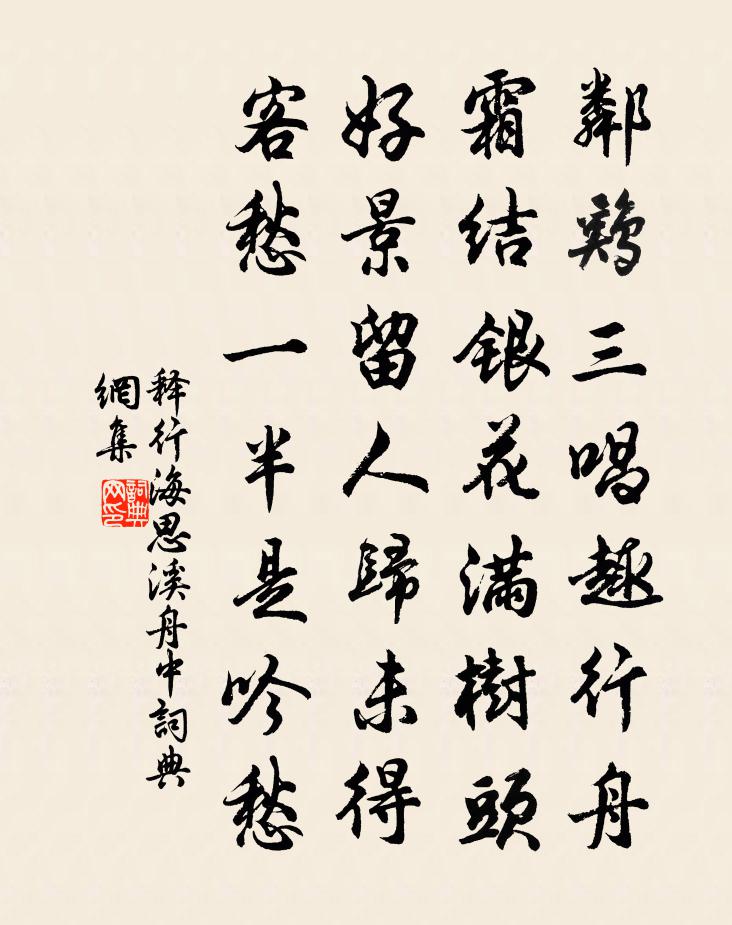 鄰鷄三唱趣行舟
霜結銀花滿樹頭
好景留人歸未得
客愁一半是吟愁
释行海思溪舟中詞典
網集
詞典
网印